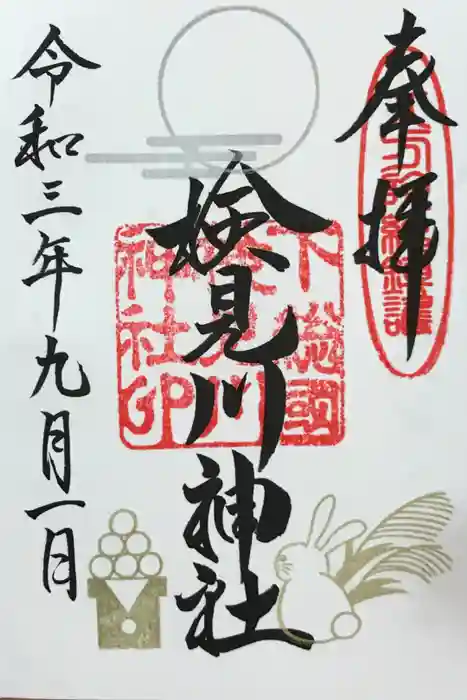 奉拝
検見川神社
下総国
検見川
神社印
令和三年九月一日